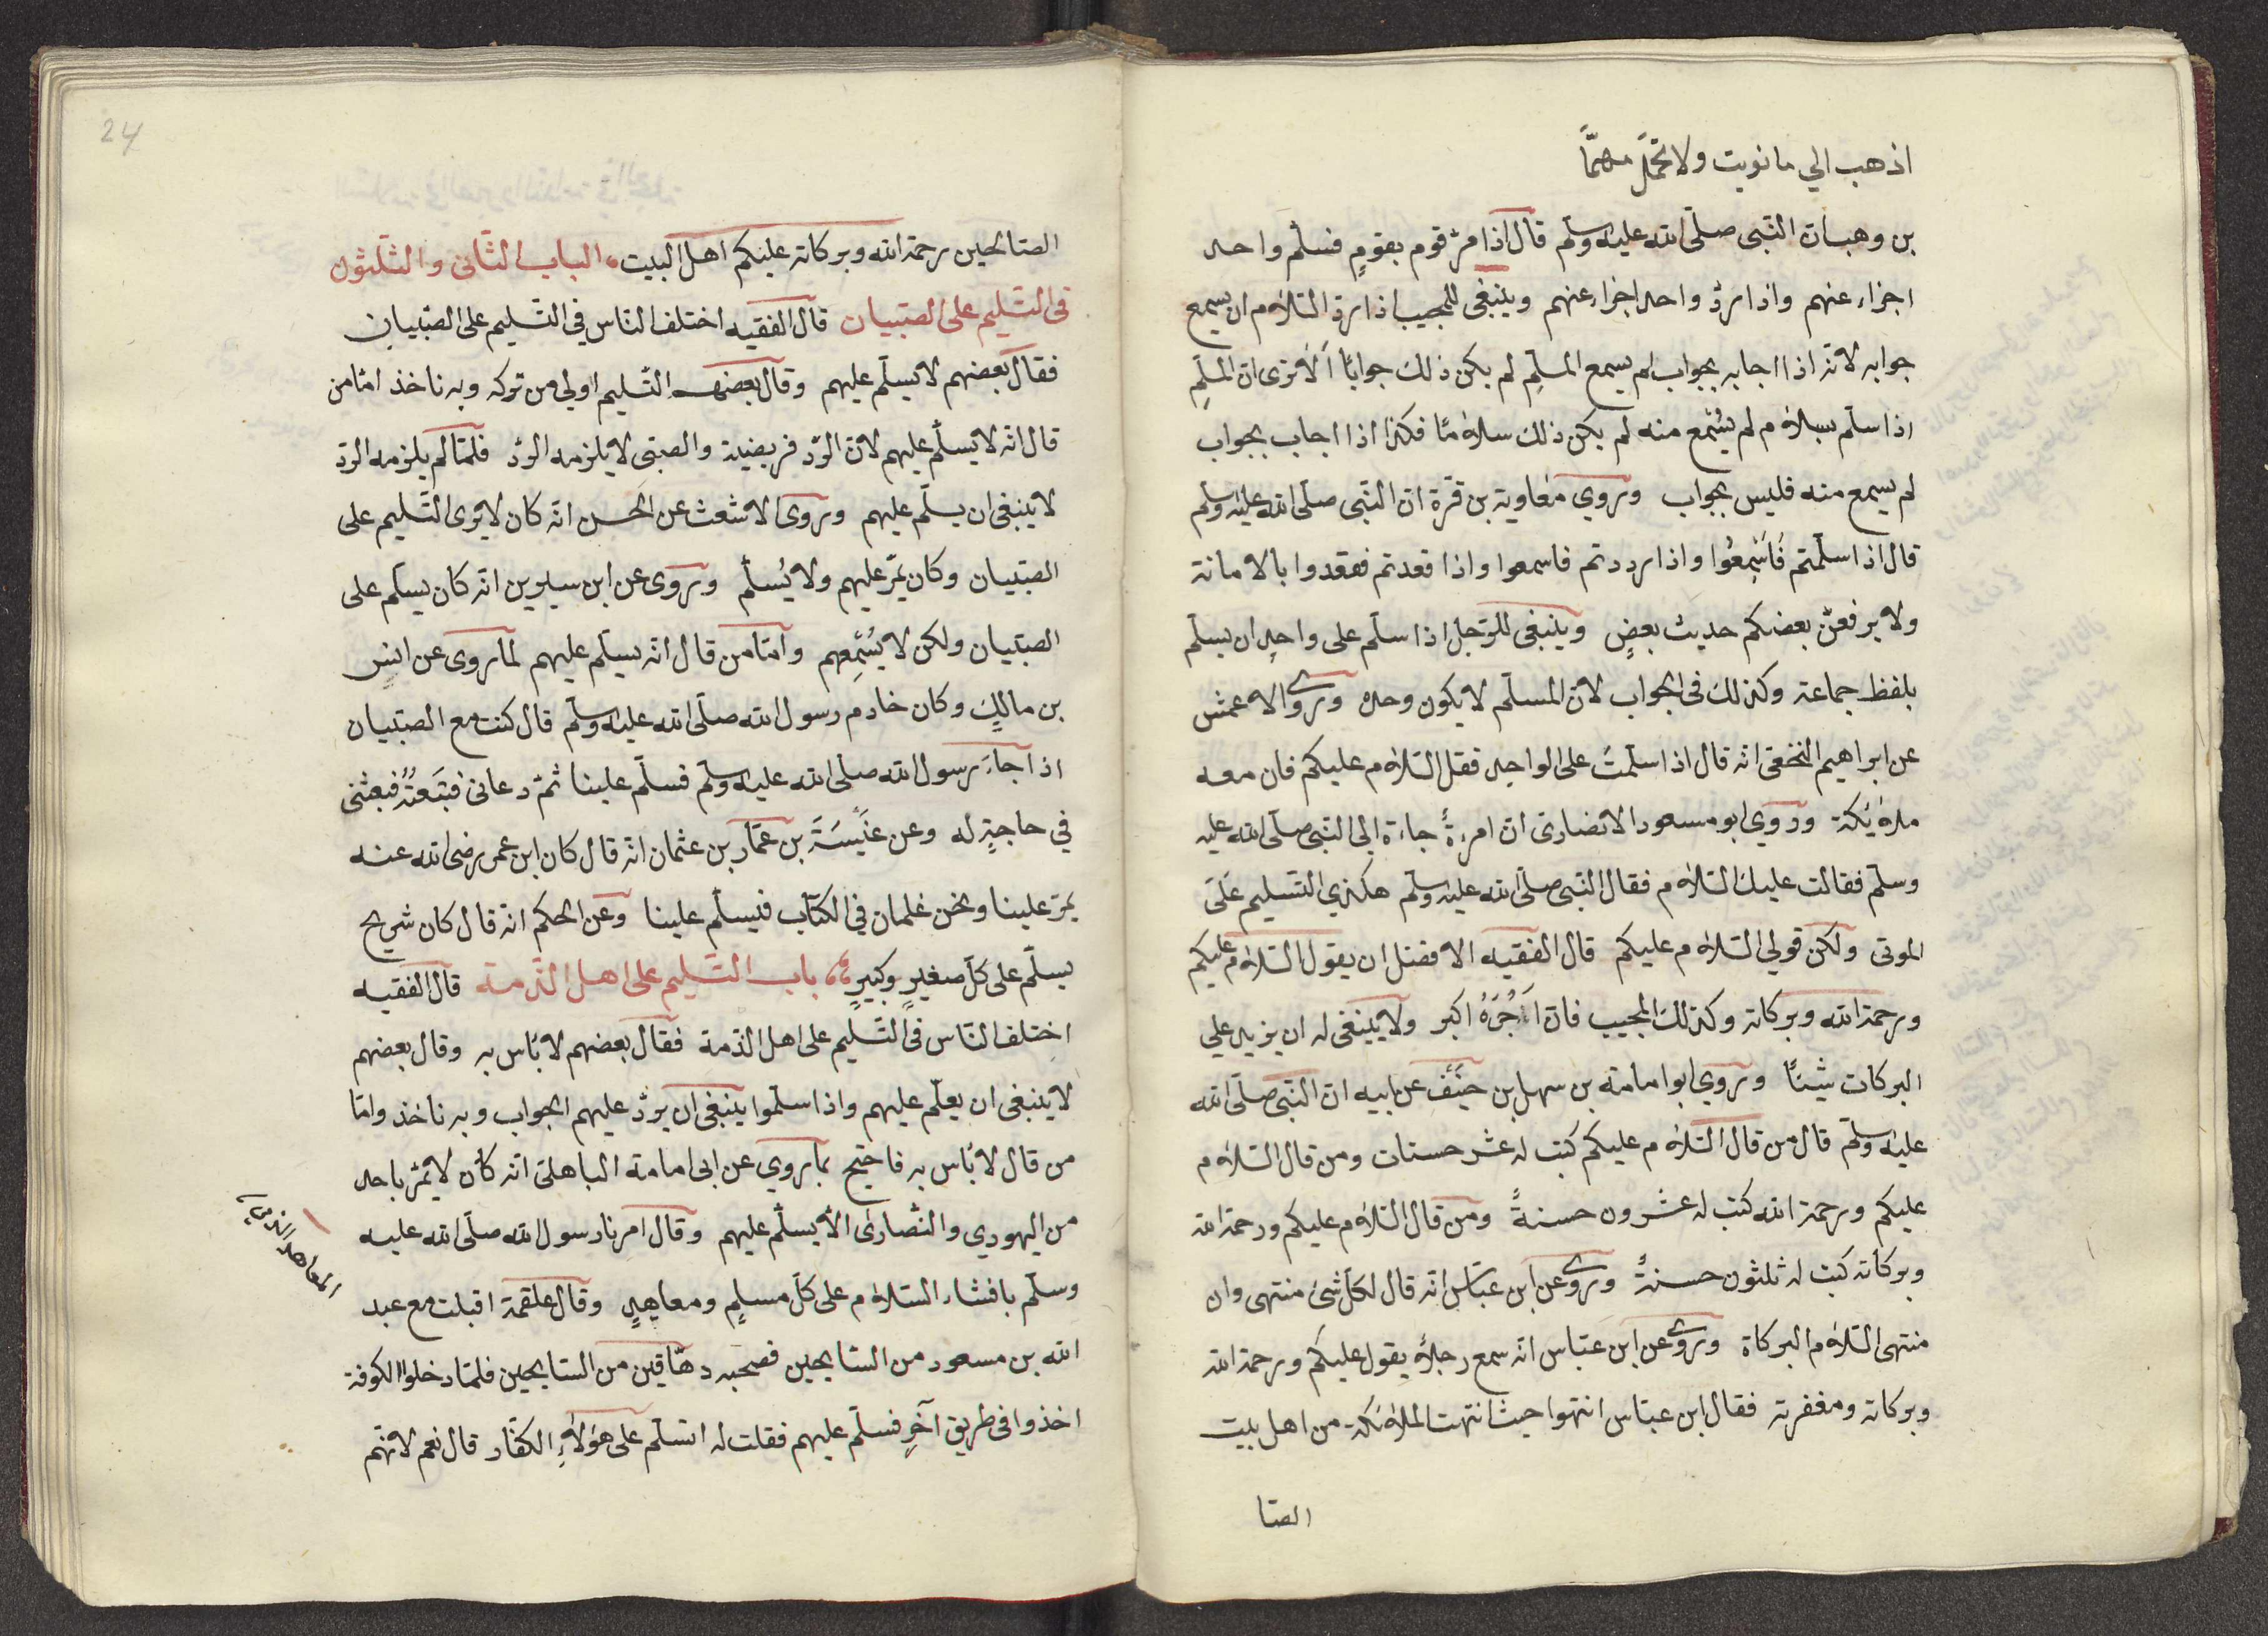 اذهب الي ما نويت ولا تحمل مهمّاً
بن وهب ان النّبى صلّى الله عليه وسلّم قال اذا مرّ قوم بقومٍ فسلّم واحد
اجزاء عنهم واذا ردّ واحد اجزاء عنهم وينبغى للمجيب اذا ردّ السّلام ان يسمع
جوابه لانّه اذا اجابه بجواب لم يسمع المسلّم لم يكن ذلك جواباً ألا ترى ان المسلّم
اذا سلّم بسلام لم يُسْمع منه لم يكن ذلك سلاماً فكذا اذا اجاب بجواب
لم يسمع منه فليس بجواب وروي معاوية بن قرّة انّ النّبى صلّى الله عليه وسلّم
قال اذا سلّمتم فَاَسْمِعُوا واذا رددتم فاسمعوا واذا قعدتم فقعدوا بالامانة
ولا يرفعنّ بعضكم حديث بعضٍ وينبغى للرّجل اذا سلّم على واحدٍ ان يسلّم
بلفظ جماعة وكذلك فى الجواب لانّ المسلّم لا يكون وحده وروى الاعمش
عن ابراهيم النخعى انّه قال اذا سلّمتَ على الواحد فقل السّلام عليكم فان معه
ملائكة وروي ابو مسعود الانصارىّ انّ امرءةً جاءة الى النّبى صلّى الله عليه
وسلّم فقالت عليك السّلام فقال النّبى صلّى الله عليه وسلّم هكذي التسليم عَلَى
الموتى ولكن قولي السّلام عليكم قال الفقيه الافضل ان يقول السّلام عليكم
ورحمة الله وبركاته وكذلك المجيب فانّ اَجْرَهُ اكبر ولا ينبغى له ان يزيد علي
البركات شيئاً وروي ابو امامة بن سهل بن حنَيْف عن ابيه انّ النّبى صلّى الله
عليه وسلّم قال من قال السّلام عليكم كتب له عشر حسنات ومن قال السّلام
عليكم ورحمة الله كتب له عشرون حسنةً ومن قال السّلام عليكم ورحمة الله
وبركاته كتب له ثلثون حسنةً وروى عن ابن عبّاس انّه قال لكلّ شئ منتهى وان
منتهى السّلام البركاة وروى عن ابن عبّاس انّه سمع رجلاً يقول عليكم ورحمة الله
وبركاته ومغفرته فقال ابن عبّاس انتهوا حيث انتهت الملائكة من اهل بيت
الصّا
24
الصّالحين رحمة الله وبركاته عليكم اهل البيت الباب الثّانى والثّلثون
فى التّسليم على الصّبيان قال الفقيه اختلف النّاس فى التّسليم على الصّبيان
فقال بعضهم لا يسلّم عليهم وقال بعضهم التّسليم اولي من تركه وبه ناخذ امّا من
قال انّه لا يسلّم عليهم لانّ الرّد فريضية والصّبى لا يلزمه الرّد فلمّا لم يلزمه الرّد
لا ينبغى ان يسلّم عليهم وروى الاشعث عن الحسن انّه كان لا يرى التّسليم على
الصّبيان وكان يمرّ عليهم ولا يُسلّم وروى عن ابن سيرين انّه كان يسلّم على
الصّبيان ولكن لا يُسْمِعهم وامّا من قال انّه يسلّم عليهم لما روى عن انس
بن مالكٍ وكان خادم رسول الله صلّى الله عليه وسلّم قال كنت مع الصّبيان
اذا جاءَ رسول الله صلّى الله عليه وسلّم فسلّم علينا ثمّ دعانى فتبعتُهُ فبعثنى
في حاجةٍ له وعن عَنْبَسَةَ بن عمّار بن عثمان انّه قال كان ابن عمر رضى الله عنه
يمرّ علينا ونحن غلمان فى الكتّاب فيسلّم علينا وعن الحكم انّه قال كان شريح
يسلّم على كلّ صغيرٍ وكبيرٍ باب التّسليم على اهل الذّمة قال الفقيه
اختلف النّاس فى التّسليم على اهل الذّمة فقال بعضهم لا بأس به وقال بعضهم
لا ينبغى ان يعلّم عليهم واذا سلّموا ينبغى ان يردّ عليهم الجواب وبه ناخذ وامّا
من قال لا بأس به فاحتج بما روي عن ابى امامة الباهلىّ انّه كان لا يمرّ باحد
من اليهودي والنّصارى الّا يسلّم عليهم وقال امرنا رسول الله صلّى الله عليه
وسلّم بافشاء السّلام على كلّ مسلمٍ ومعاهدٍ وقال علقمة اقبلت مع عبد
المعاهد الذمى
الله بن مسعود من السّايحين فصحبه دهّاقين من السّايحين فلمّا دخلوا الكوفة
اخذوا فى طريق آخرٍ فسلّم عليهم فقلت له اتسلّم على هؤلاءِ الكفّار قال نعم لانّهم